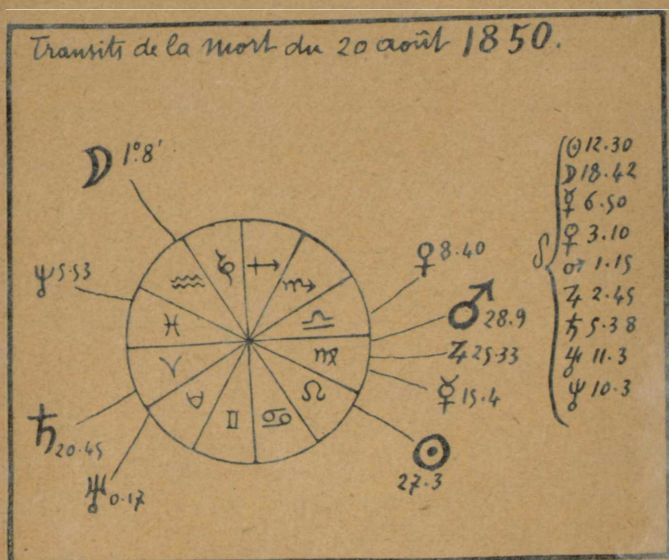 Transits de la mort du 20 août 1850.
☽ 1°8'
♆ 5.53
♄ 20.45
♅ 0.17
♀ 8.40
♂ 28.9
♃ 25.33
☿ 15.4
☉ 27.3
♒ ♑ ♐ ♏ ♎ ♍ ♌ ♋ ♊ ♉ ♈ ♓
δ
☉ 12.30
☽ 18.42
☿ 6.50
♀ 3.10
♂ 1.15
♃ 2.45
♄ 5.38
♅ 11.3
♆ 10.3